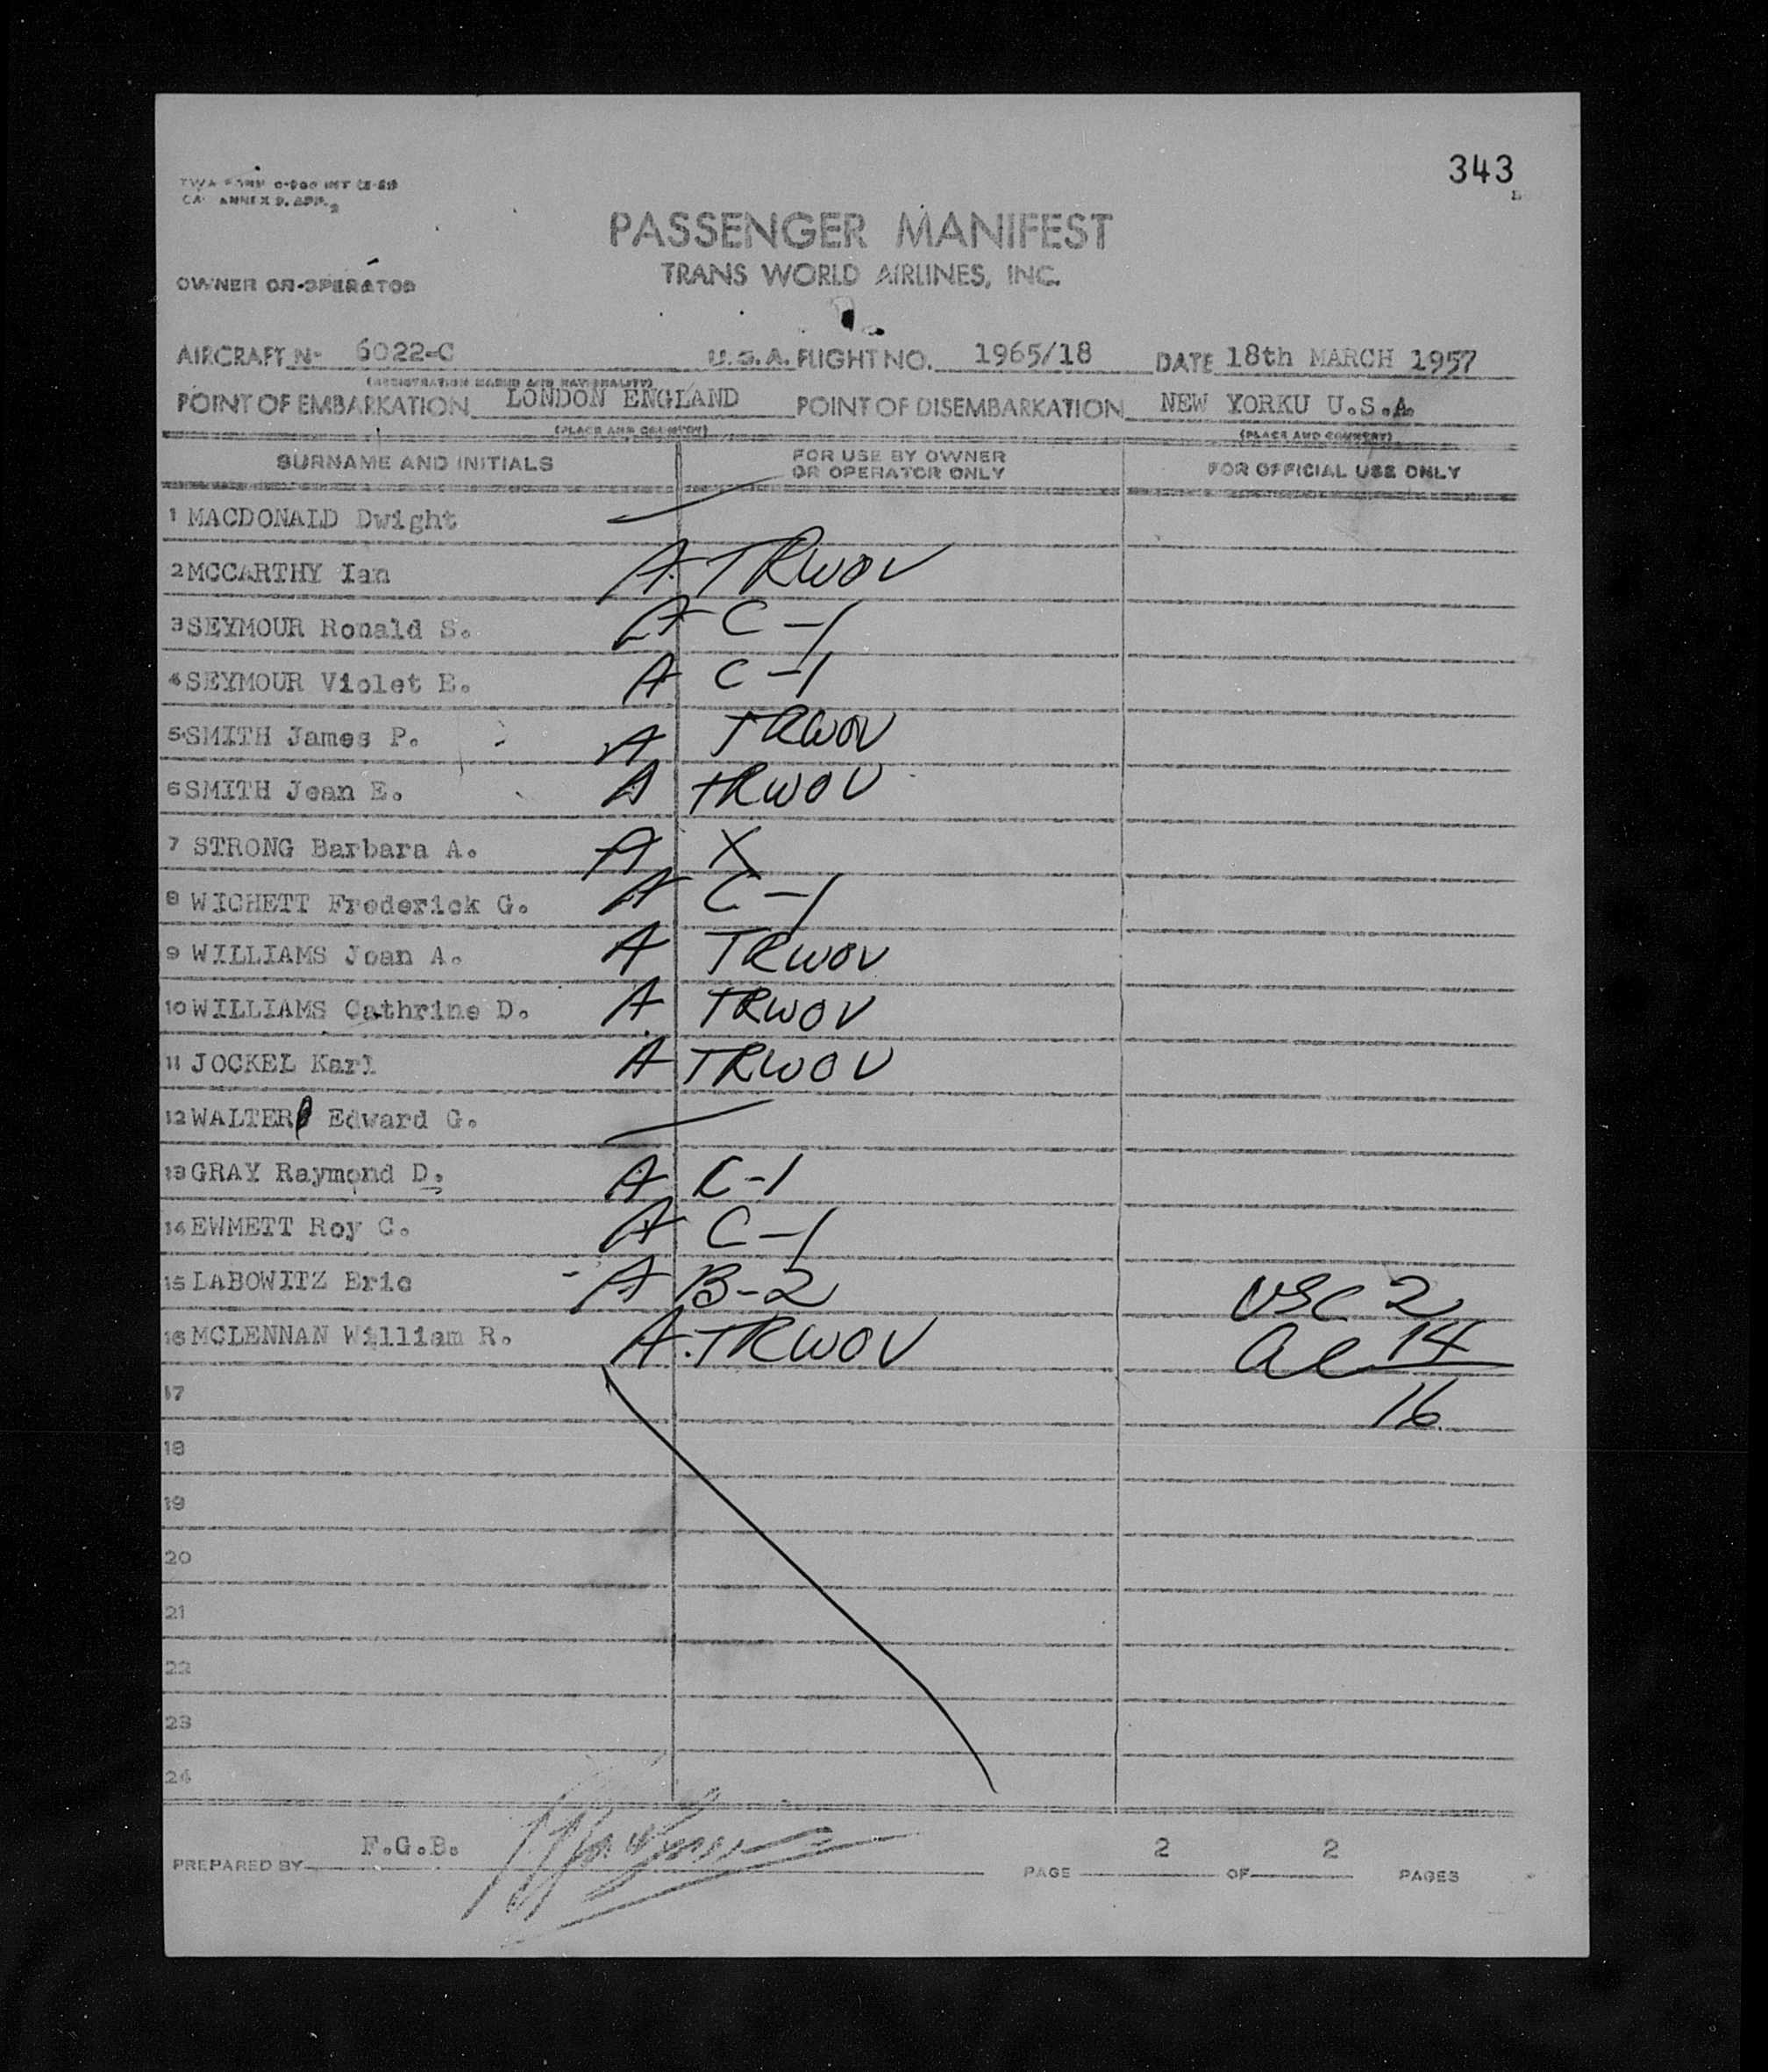 343
TWA FORM
ANNEX 9. APP. 2
PASSENGER MANIFEST
TRANS WORLD AIRLINES, INC.
OWNER OR OPERATOR
AIRCRAFT No 6022-C U.S.A. FLIGHT NO. 1965/18 DATE 18th MARCH 1957
(REGISTRATION MARKS AND NATIONALITY)
POINT OF EMBARKATION LONDON ENGLAND POINT OF DISEMBARKATION NEW YORKU U.S.A.
(PLACE AND COUNTRY) (PLACE AND COUNTRY)
SURNAME AND INITIALS FOR USE BY OWNER OR OPERATOR ONLY FOR OFFICIAL USE ONLY
1 MACDONALD Dwight
2 MCCARTHY Ian A. TRWOV
3 SEYMOUR Ronald S. A C-1
4 SEYMOUR Violet E. A C-1
5 SMITH James P. A TRWOV
6 SMITH Jean E. A TRWOV
7 STRONG Barbara A. A X
8 WICHETT Frederick G. A C-1
9 WILLIAMS Joan A. A TRWOV
10 WILLIAMS Cathrine D. A TRWOV
11 JOCKEL Karl A TRWOV
12 WALTER Edward G.
13 GRAY Raymond D. A C-1
14 EWMETT Roy C. A C-1
15 LABOWITZ Eric A B-2 USC 2
16 MCLENNAN William R. A. TRWOV Al 14
17 16
18
19
20
21
22
23
24
PREPARED BY F.G.B. PAGE 2 OF 2 PAGES